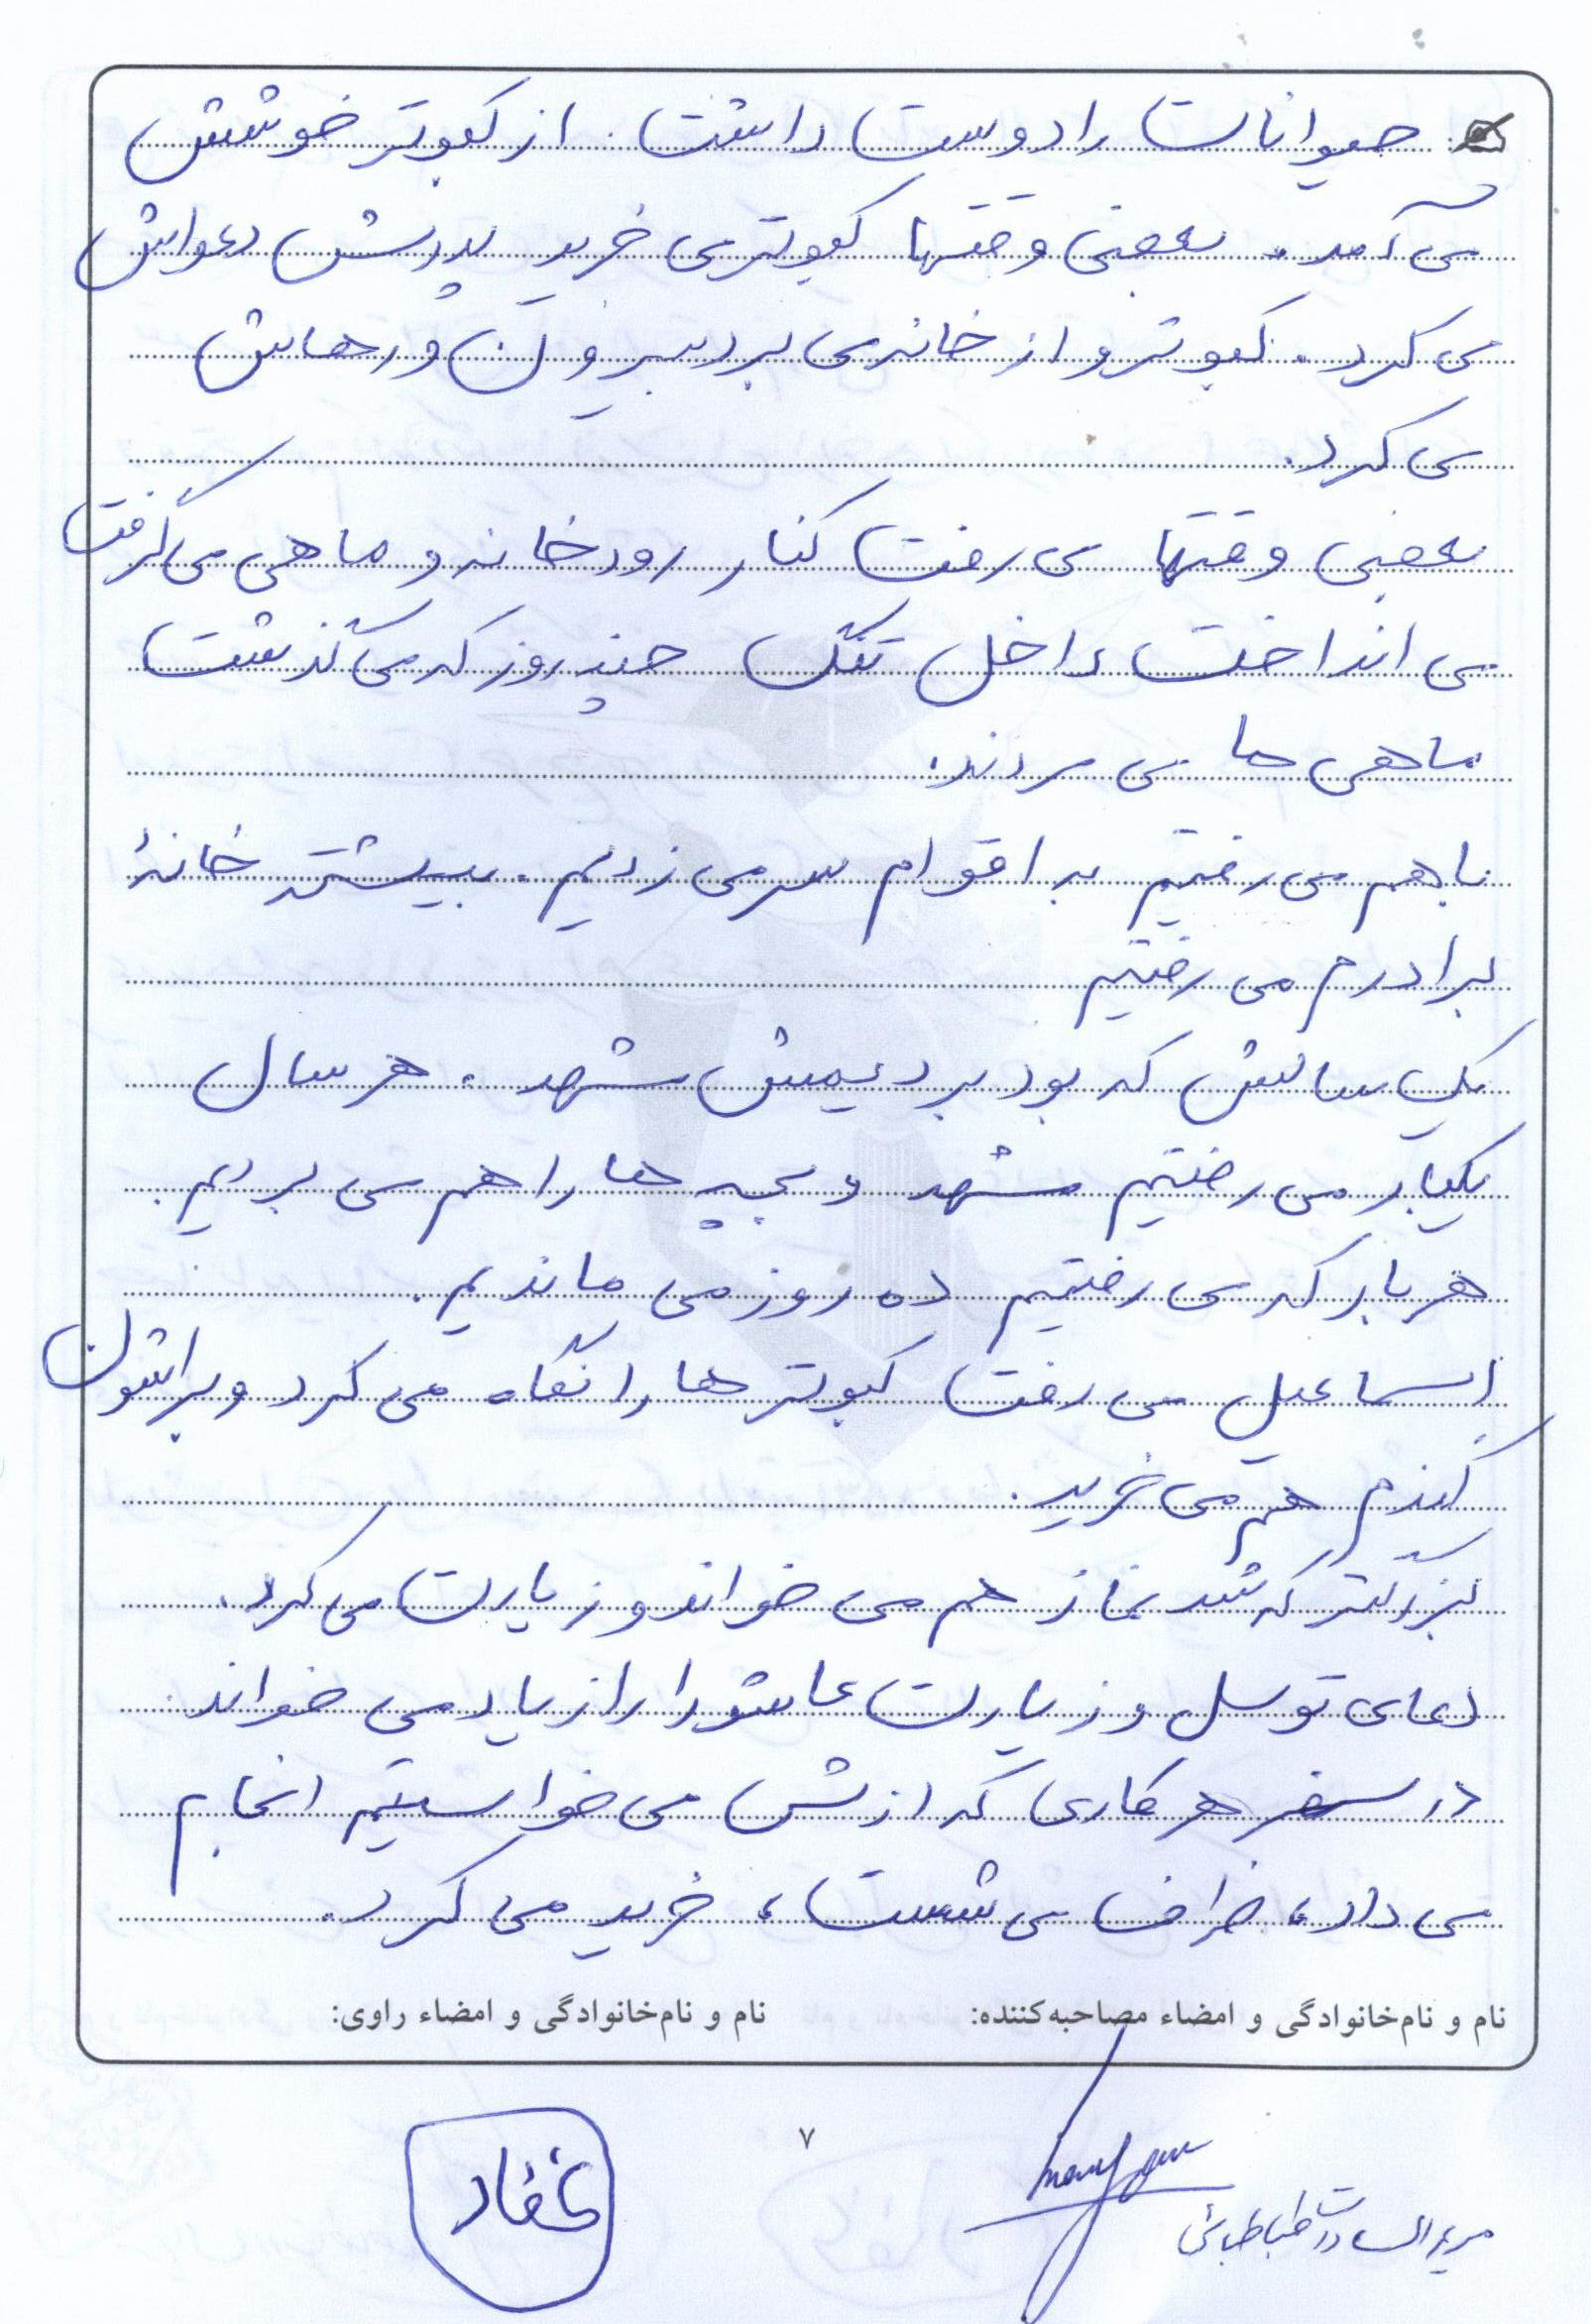 حیوانات را دوست داشت. از کبوتر خوشش
می آمد. بعضی وقتها کبوتری خرید پدرش دعواش
می کرد. کبوتر و از خانه می برد بیرون و رهاش
می کرد.
بعضی وقتها می رفت کنار رودخانه و ماهی می گرفت
می انداخت داخل تنگ چند روز که می گذشت
ماهی ها می مردند.
با هم می رفتیم به اقوام سر می زدیم. بیشتر خانهٔ
برادرم می رفتیم
یک سالش که بود بردیمش مشهد. هر سال
یکبار می رفتیم مشهد و بچه ها را هم می بردیم.
هر بار که می رفتیم ده روز می ماندیم.
اسماعیل می رفت کبوترها را نگاه می کرد و براشون
گندم هم می خرید.
بزرگتر که شد نماز هم می خواند و زیارت می کرد.
دعای توسل و زیارت عاشورا را زیاد می خواند.
در سفر هر کاری که ازش می خواستیم انجام
می داد، ظرف می شست، خرید می کرد.
نام و نام‌خانوادگی و امضاء مصاحبه‌کننده: نام و نام‌خانوادگی و امضاء راوی:
۷
مریم السادات طباطبائی